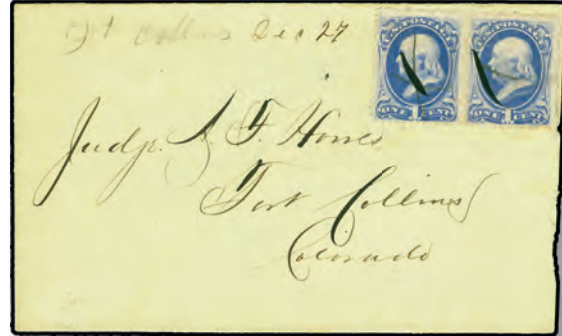 Ft Collins Dec 27
U.S. POSTAGE
ONE 1 CENT
U.S. POSTAGE
ONE 1 CENT
Judge A. F. Howes
Fort Collins
Colorado